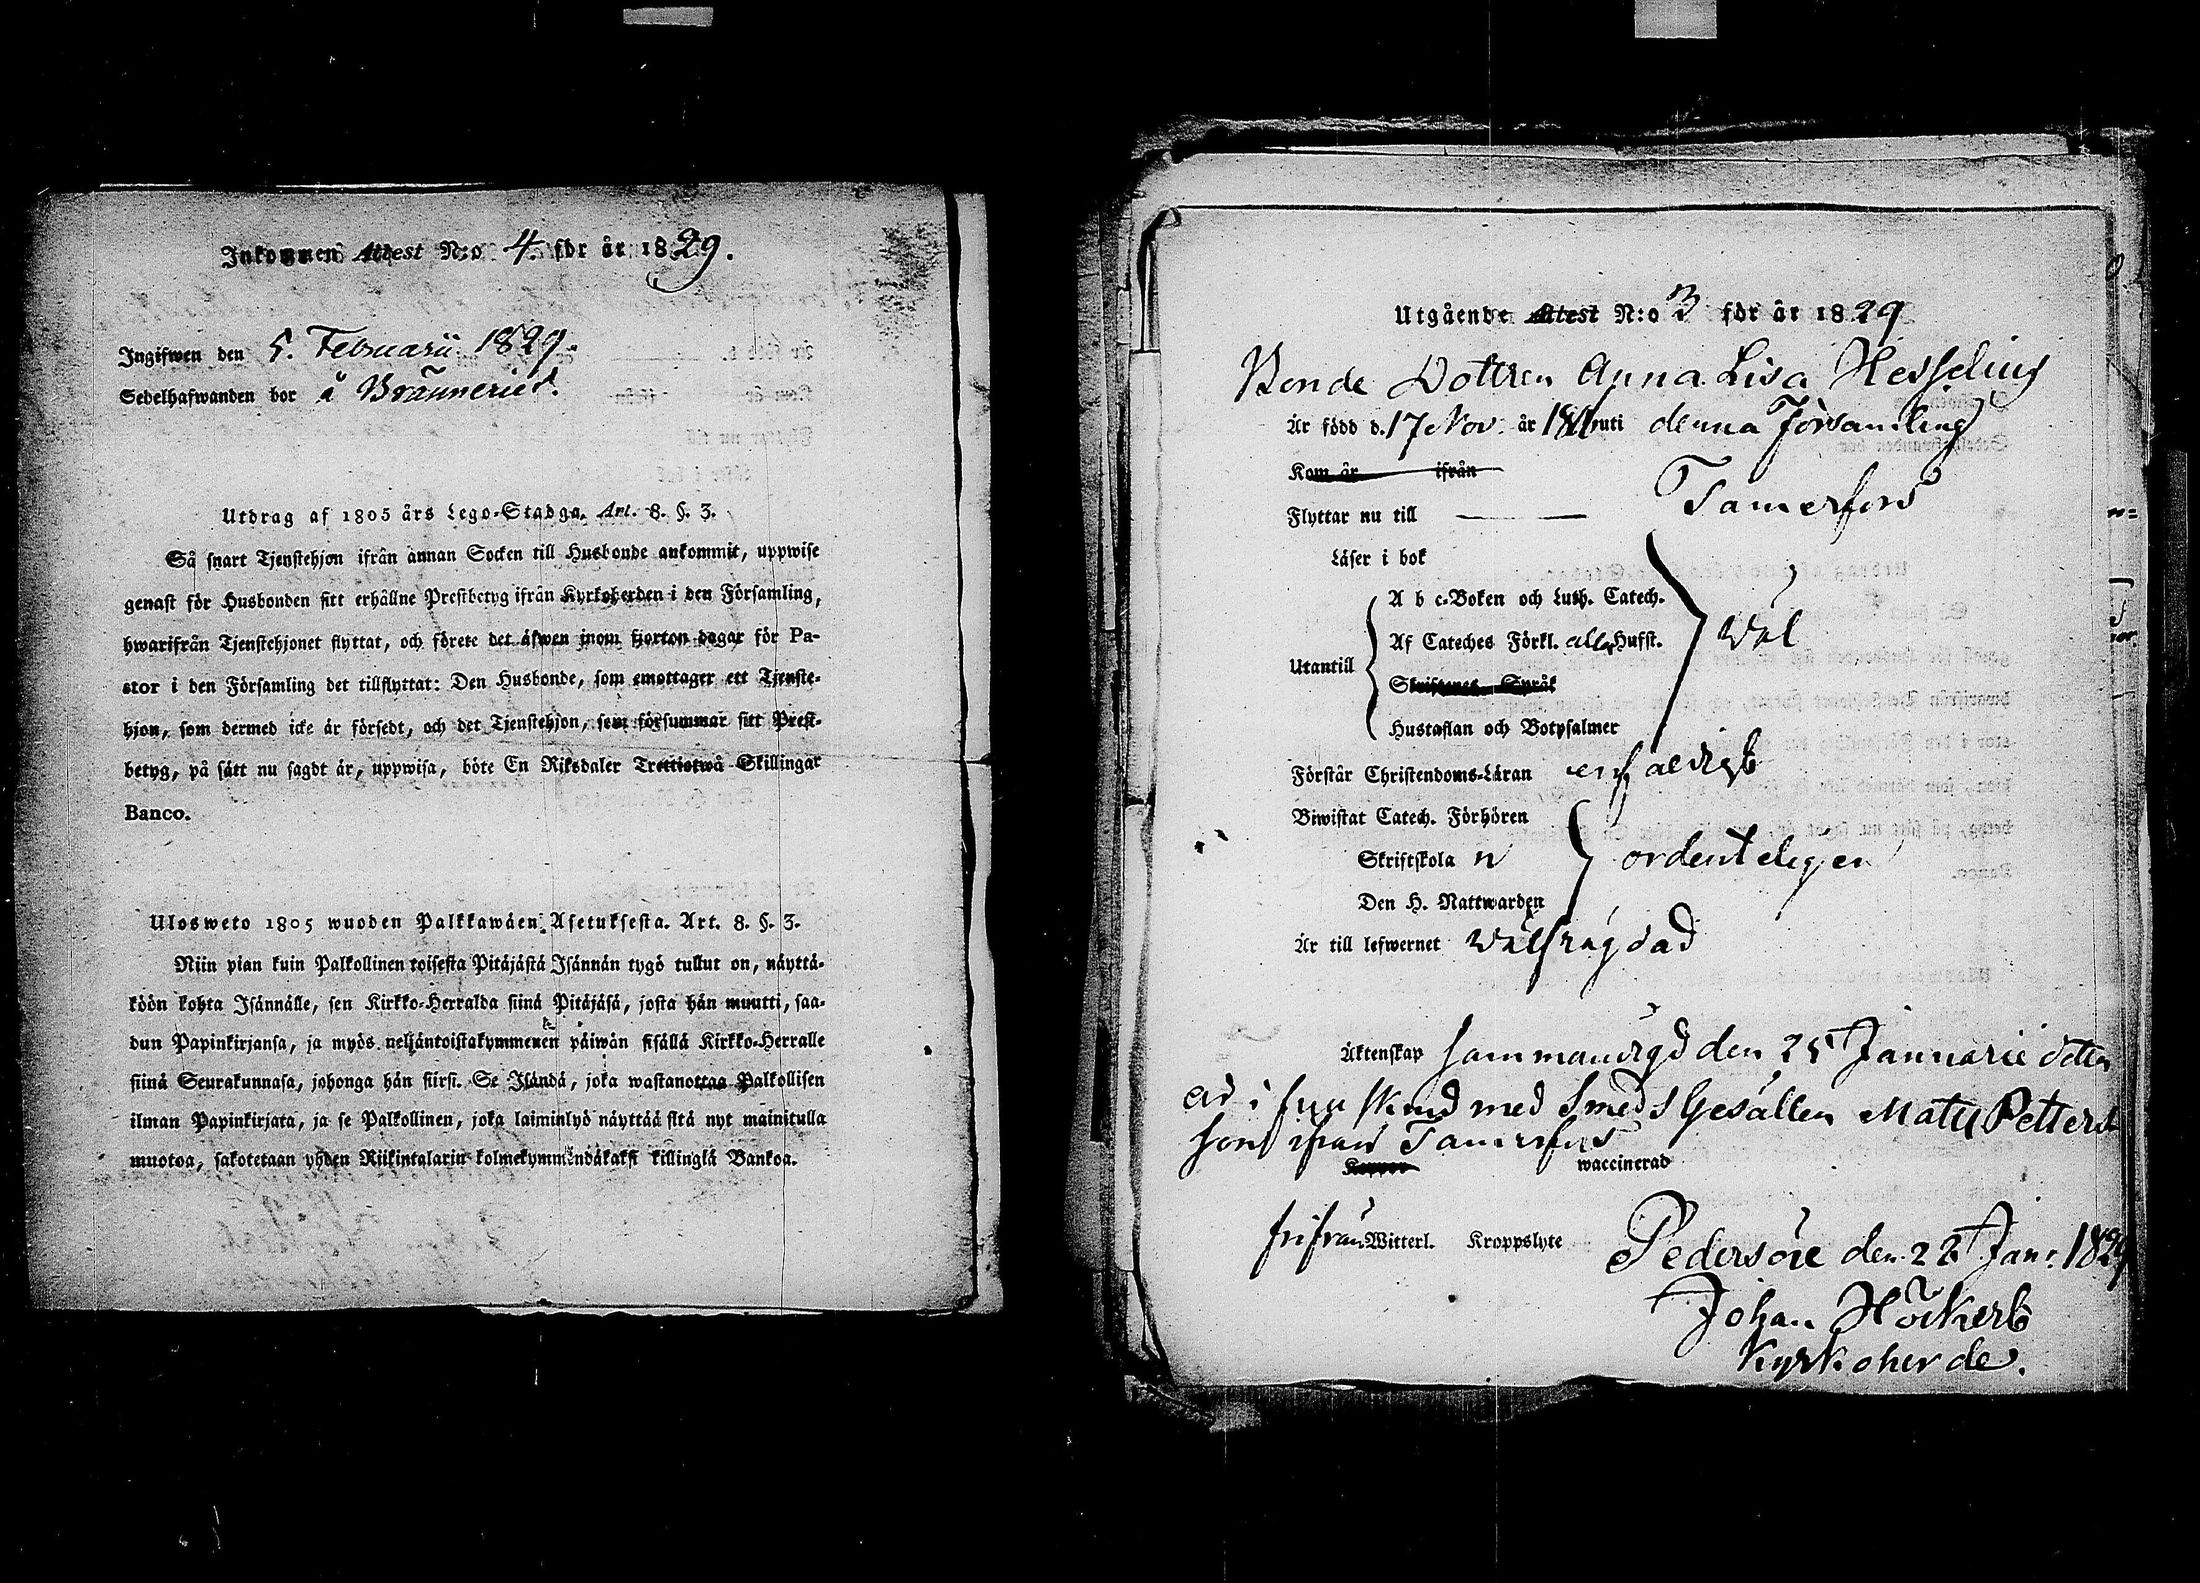 Inkommen Attest N:o 4. för år 1829.
Ingifwen den 5. Februarii 1829.
Sedelhafwanden bor å Bränneriet.
Utdrag af 1805 års Lego-Stadga. Art. 8. §. 3.
Så snart Tjenstehjon ifrån annan Socken till Husbonde ankommit, uppwise
genast för Husbonden sitt erhållne Prestbetyg ifrån Kyrkoherden i den Församling,
hwarifrån Tjenstehjonet flyttat, och förete det äfwen inom fjorton dagar för Pa-
stor i den Församling det tillflyttat: Den Husbonde, som emottager ett Tjenste-
hjon, som dermed icke är försedt, och det Tjenstehjon, som försummar sitt Prest-
betyg, på sätt nu sagdt är, uppwisa, böte En Riksdaler Trettiotwå Skillingar
Banco.
Ulosweto 1805 wuoden Palkkawäen Asetuksesta. Art. 8. §. 3.
Niin pian kuin Palkollinen toisesta Pitäjästä Isännän tygö tullut on, näyttä-
köön kohta Isännälle, sen Kirkko-Herralda siinä Pitäjäsä, josta hän muutti, saa-
dun Papinkirjansa, ja myös neljäntoistakymmenen päiwän sisällä Kirkko-Herralle
siinä Seurakunnasa, johonga hän siirsi. Se Isändä, joka wastanottaa Palkollisen
ilman Papinkirjata, ja se Palkollinen, joka laiminlyö näyttää sitä nyt mainitulla
muotoa, sakotetaan yhden Riikintalarin kolmekymmendäkaksi killingiä Bankoa.
Utgående Attest N:o 3 för år 1829
Bonde Dottren Anna Lisa Hesseling
Är född d. 17 Nov. år uti denna Församling
Kom år ifrån
Flyttar nu till Tamerfors
Läser i bok
A b c-Boken och Luth. Catech.
Utantill Af Cateches Förkl. alla Hufst. Wäl
Skriftenes Språk
Hustaflan och Botpsalmer
Förstår Christendoms-Läran enfaldigt
Biwistat Catech. Förhören
Skriftskola n ordenteligen
Den H. Nattwarden
Är till lefwernet wälfrägdad
Äktenskap sammanwigd den 25 Januarie
med Smeds Gesällen Matts Petters
son ifrån Tamerfors
Koppor waccinerad
fri från Witterl. Kroppslyte Pedersöre den 28 Jan: 1829
Johan Höckert
Kyrkoherde.